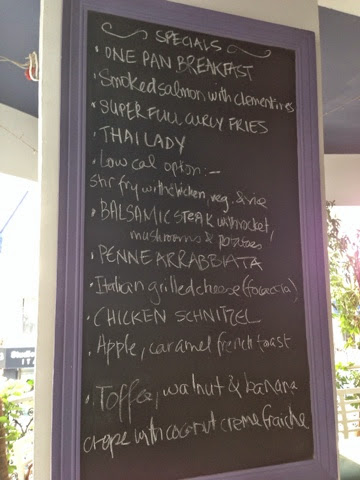 SPECIALS
• ONE PAN BREAKFAST
• Smoked salmon with clementines
• SUPER FULL CURLY FRIES
• THAI LADY
• Low cal option :-
stir fry with chicken, veg. & rice
• BALSAMIC STEAK with rocket,
mushrooms & potatoes
• PENNE ARRABBIATA
• Italian grilled cheese (focaccia)
• CHICKEN SCHNITZEL
• Apple, caramel french toast
• Toffee, walnut & banana
crepe with coconut creme fraiche
Studio